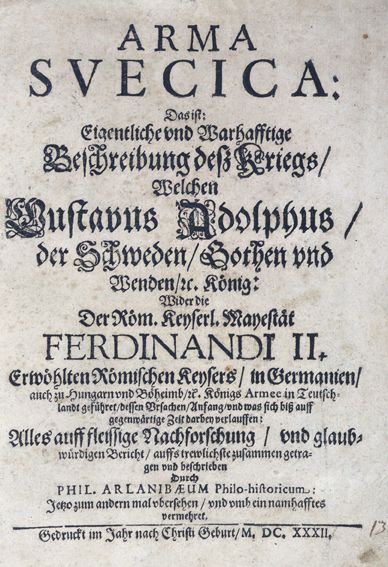 ARMA
SVECICA:
Das ist:
Eigentliche vnd Warhafftige
Beschreibung deß Kriegs/
Welchen
Gustavus Adolphus/
der Schweden/Gothen vnd
Wenden/ꝛc. König:
Wider die
Der Röm. Keyserl. Mayestät
FERDINANDI II.
Erwöhlten Römischen Keysers/ in Germanien/
auch zu Hungarn vnd Böheimb/ꝛc. Königs Armee in Teutsch-
landt geführet/dessen Vrsachen/Anfang/vnd was sich biß auff
gegenwärtige Zeit darbey verlauffen:
Alles auff fleissige Nachforschung/ vnd glaub-
würdigen Bericht/ auffs trewlichste zusammen getra-
gen vnd beschrieben
Durch
PHIL. ARLANIBÆUM Philo-historicum:
Jetzo zum andern mal vbersehen/ vnd vmb ein namhafftes
vermehret.
Gedruckt im Jahr nach Christi Geburt/M. DC. XXXII.
13